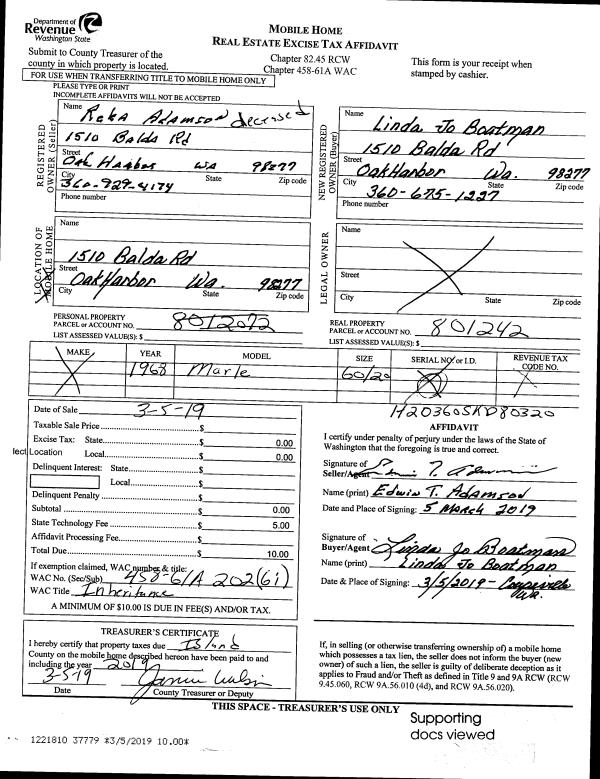 Department of
Revenue
Washington State
MOBILE HOME
REAL ESTATE EXCISE TAX AFFIDAVIT
Chapter 82.45 RCW
Chapter 458-61A WAC
Submit to County Treasurer of the
county in which property is located.
This form is your receipt when
stamped by cashier.
FOR USE WHEN TRANSFERRING TITLE TO MOBILE HOME ONLY
PLEASE TYPE OR PRINT
INCOMPLETE AFFIDAVITS WILL NOT BE ACCEPTED
REGISTERED OWNER (Seller)
Name
Reba Adamson deceased
1510 Balda Rd
Street
Oak Harbor WA 98277
City State Zip code
360-929-4174
Phone number
NEW REGISTERED OWNER (Buyer)
Name
Linda Jo Boatman
1510 Balda Rd
Street
Oak Harbor Wa. 98277
City State Zip code
360-675-1227
Phone number
LOCATION OF MOBILE HOME
Name
1510 Balda Rd
Street
Oak Harbor Wa. 98277
City State Zip code
LEGAL OWNER
Name
Street
City State Zip code
PERSONAL PROPERTY
PARCEL or ACCOUNT NO. 8012072
LIST ASSESSED VALUE(S): $
REAL PROPERTY
PARCEL or ACCOUNT NO. 801242
LIST ASSESSED VALUE(S): $
MAKE YEAR MODEL SIZE SERIAL NO. or I.D. REVENUE TAX CODE NO.
1968 Marle 60/20
H20360SKD80320
Date of Sale 3-5-19
Taxable Sale Price $
Excise Tax: State $ 0.00
lect Location Local $ 0.00
Delinquent Interest: State $
Local $
Delinquent Penalty $
Subtotal $ 0.00
State Technology Fee $ 5.00
Affidavit Processing Fee $
Total Due $ 10.00
If exemption claimed, WAC number & title:
WAC No. (Sec/Sub) 458-61A 202(6i)
WAC Title Inheritance
A MINIMUM OF $10.00 IS DUE IN FEE(S) AND/OR TAX.
AFFIDAVIT
I certify under penalty of perjury under the laws of the State of
Washington that the foregoing is true and correct.
Signature of
Seller/Agent
Name (print) Edwin T. Adamson
Date and Place of Signing: 5 March 2019
Signature of
Buyer/Agent Linda Jo Boatman
Name (print) Linda Jo Boatman
Date & Place of Signing: 3/5/2019 - Coupeville Wa.
TREASURER'S CERTIFICATE
I hereby certify that property taxes due Island
County on the mobile home described hereon have been paid to and
including the year 2019
3-5-19
Date County Treasurer or Deputy
If, in selling (or otherwise transferring ownership of) a mobile home
which possesses a tax lien, the seller does not inform the buyer (new
owner) of such a lien, the seller is guilty of deliberate deception as it
applies to Fraud and/or Theft as defined in Title 9 and 9A RCW (RCW
9.45.060, RCW 9A.56.010 (4d), and RCW 9A.56.020).
THIS SPACE - TREASURER'S USE ONLY
Supporting
docs viewed
1221810 37779 *3/5/2019 10.00*